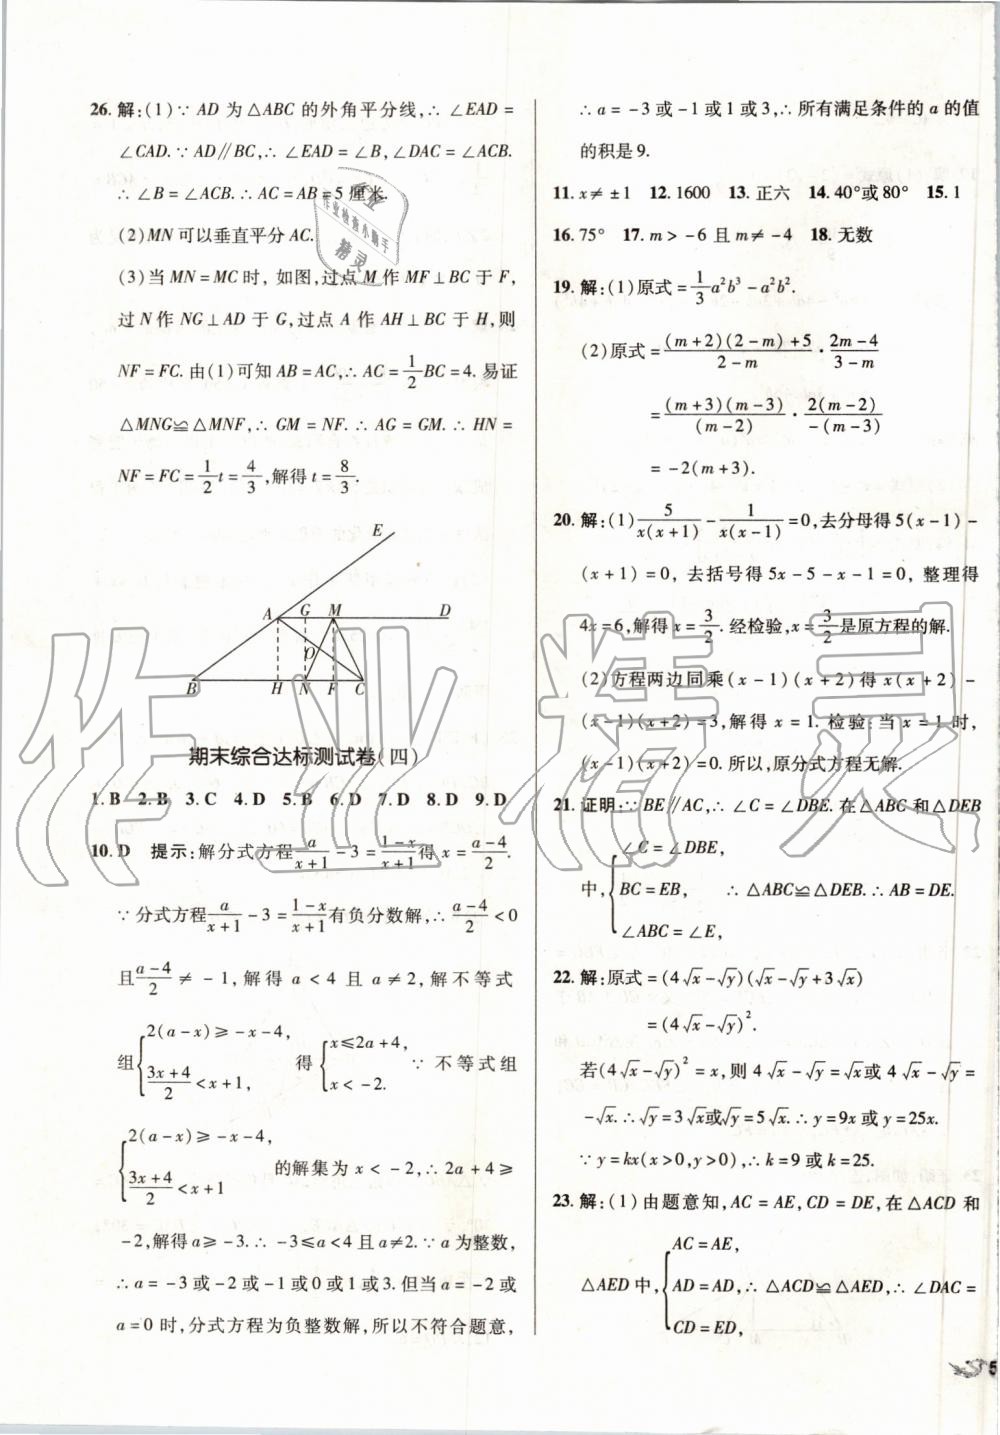 26. 解:(1)∵ AD 为△ABC 的外角平分线,∴ ∠EAD =
∠CAD. ∵ AD∥BC,∴ ∠EAD = ∠B,∠DAC = ∠ACB.
∴ ∠B = ∠ACB. ∴ AC = AB = 5 厘米.
(2)MN 可以垂直平分 AC.
(3)当 MN = MC 时, 如图,过点 M 作 MF⊥BC 于 F,
过 N 作 NG⊥AD 于 G,过点 A 作 AH⊥BC 于 H,则
NF = FC. 由(1)可知 AB = AC,∴ AC = 1/2 BC = 4. 易证
△MNG≌△MNF,∴ GM = NF. ∴ AG = GM. ∴ HN =
NF = FC = 1/2 t = 4/3,解得 t = 8/3.
E
A G M D
O
B H N F C
期末综合达标测试卷(四)
1. B 2. B 3. C 4. D 5. B 6. D 7. D 8. D 9. D
10. D 提示:解分式方程 a/(x+1) - 3 = (1-x)/(x+1) 得 x = (a-4)/2.
∵ 分式方程 a/(x+1) - 3 = (1-x)/(x+1) 有负分数解,∴ (a-4)/2 < 0
且 (a-4)/2 ≠ -1,解得 a < 4 且 a ≠ 2,解不等式
组 { 2(a-x) ≥ -x-4, (3x+4)/2 < x+1, 得 { x ≤ 2a+4, x < -2. ∵ 不等式组
{ 2(a-x) ≥ -x-4, (3x+4)/2 < x+1 的解集为 x < -2,∴ 2a+4 ≥
-2,解得 a ≥ -3. ∴ -3 ≤ a < 4 且 a ≠ 2. ∵ a 为整数,
∴ a = -3 或 -2 或 -1 或 0 或 1 或 3. 但当 a = -2 或
a = 0 时,分式方程为负整数解,所以不符合题意,
∴ a = -3 或 -1 或 1 或 3,∴ 所有满足条件的 a 的值
的积是 9.
11. x ≠ ±1 12. 1600 13. 正六 14. 40°或 80° 15. 1
16. 75° 17. m > -6 且 m ≠ -4 18. 无数
19. 解:(1)原式 = 1/3 a²b³ - a²b².
(2)原式 = ((m+2)(2-m)+5)/(2-m) · (2m-4)/(3-m)
= ((m+3)(m-3))/((m-2)) · (2(m-2))/(-(m-3))
= -2(m+3).
20. 解:(1) 5/(x(x+1)) - 1/(x(x-1)) = 0,去分母得 5(x-1) -
(x+1) = 0, 去括号得 5x-5-x-1 = 0, 整理得
4x = 6,解得 x = 3/2. 经检验,x = 3/2 是原方程的解.
(2)方程两边同乘(x-1)(x+2)得 x(x+2) -
(x-1)(x+2) = 3,解得 x = 1. 检验:当 x = 1 时,
(x-1)(x+2) = 0. 所以,原分式方程无解.
21. 证明:∵ BE∥AC,∴ ∠C = ∠DBE. 在△ABC 和△DEB
中, { ∠C = ∠DBE, BC = EB, ∠ABC = ∠E, ∴ △ABC≌△DEB. ∴ AB = DE.
22. 解:原式 = (4√x - √y)(√x - √y + 3√x)
= (4√x - √y)².
若(4√x - √y)² = x,则 4√x - √y = √x 或 4√x - √y =
-√x. ∴ √y = 3√x 或 √y = 5√x. ∴ y = 9x 或 y = 25x.
∵ y = kx(x>0,y>0),∴ k = 9 或 k = 25.
23. 解:(1)由题意知,AC = AE,CD = DE,在△ACD 和
△AED 中, { AC = AE, AD = AD, CD = ED, ∴ △ACD≌△AED,∴ ∠DAC =
5
作业检查小助手
精灵
作业精灵